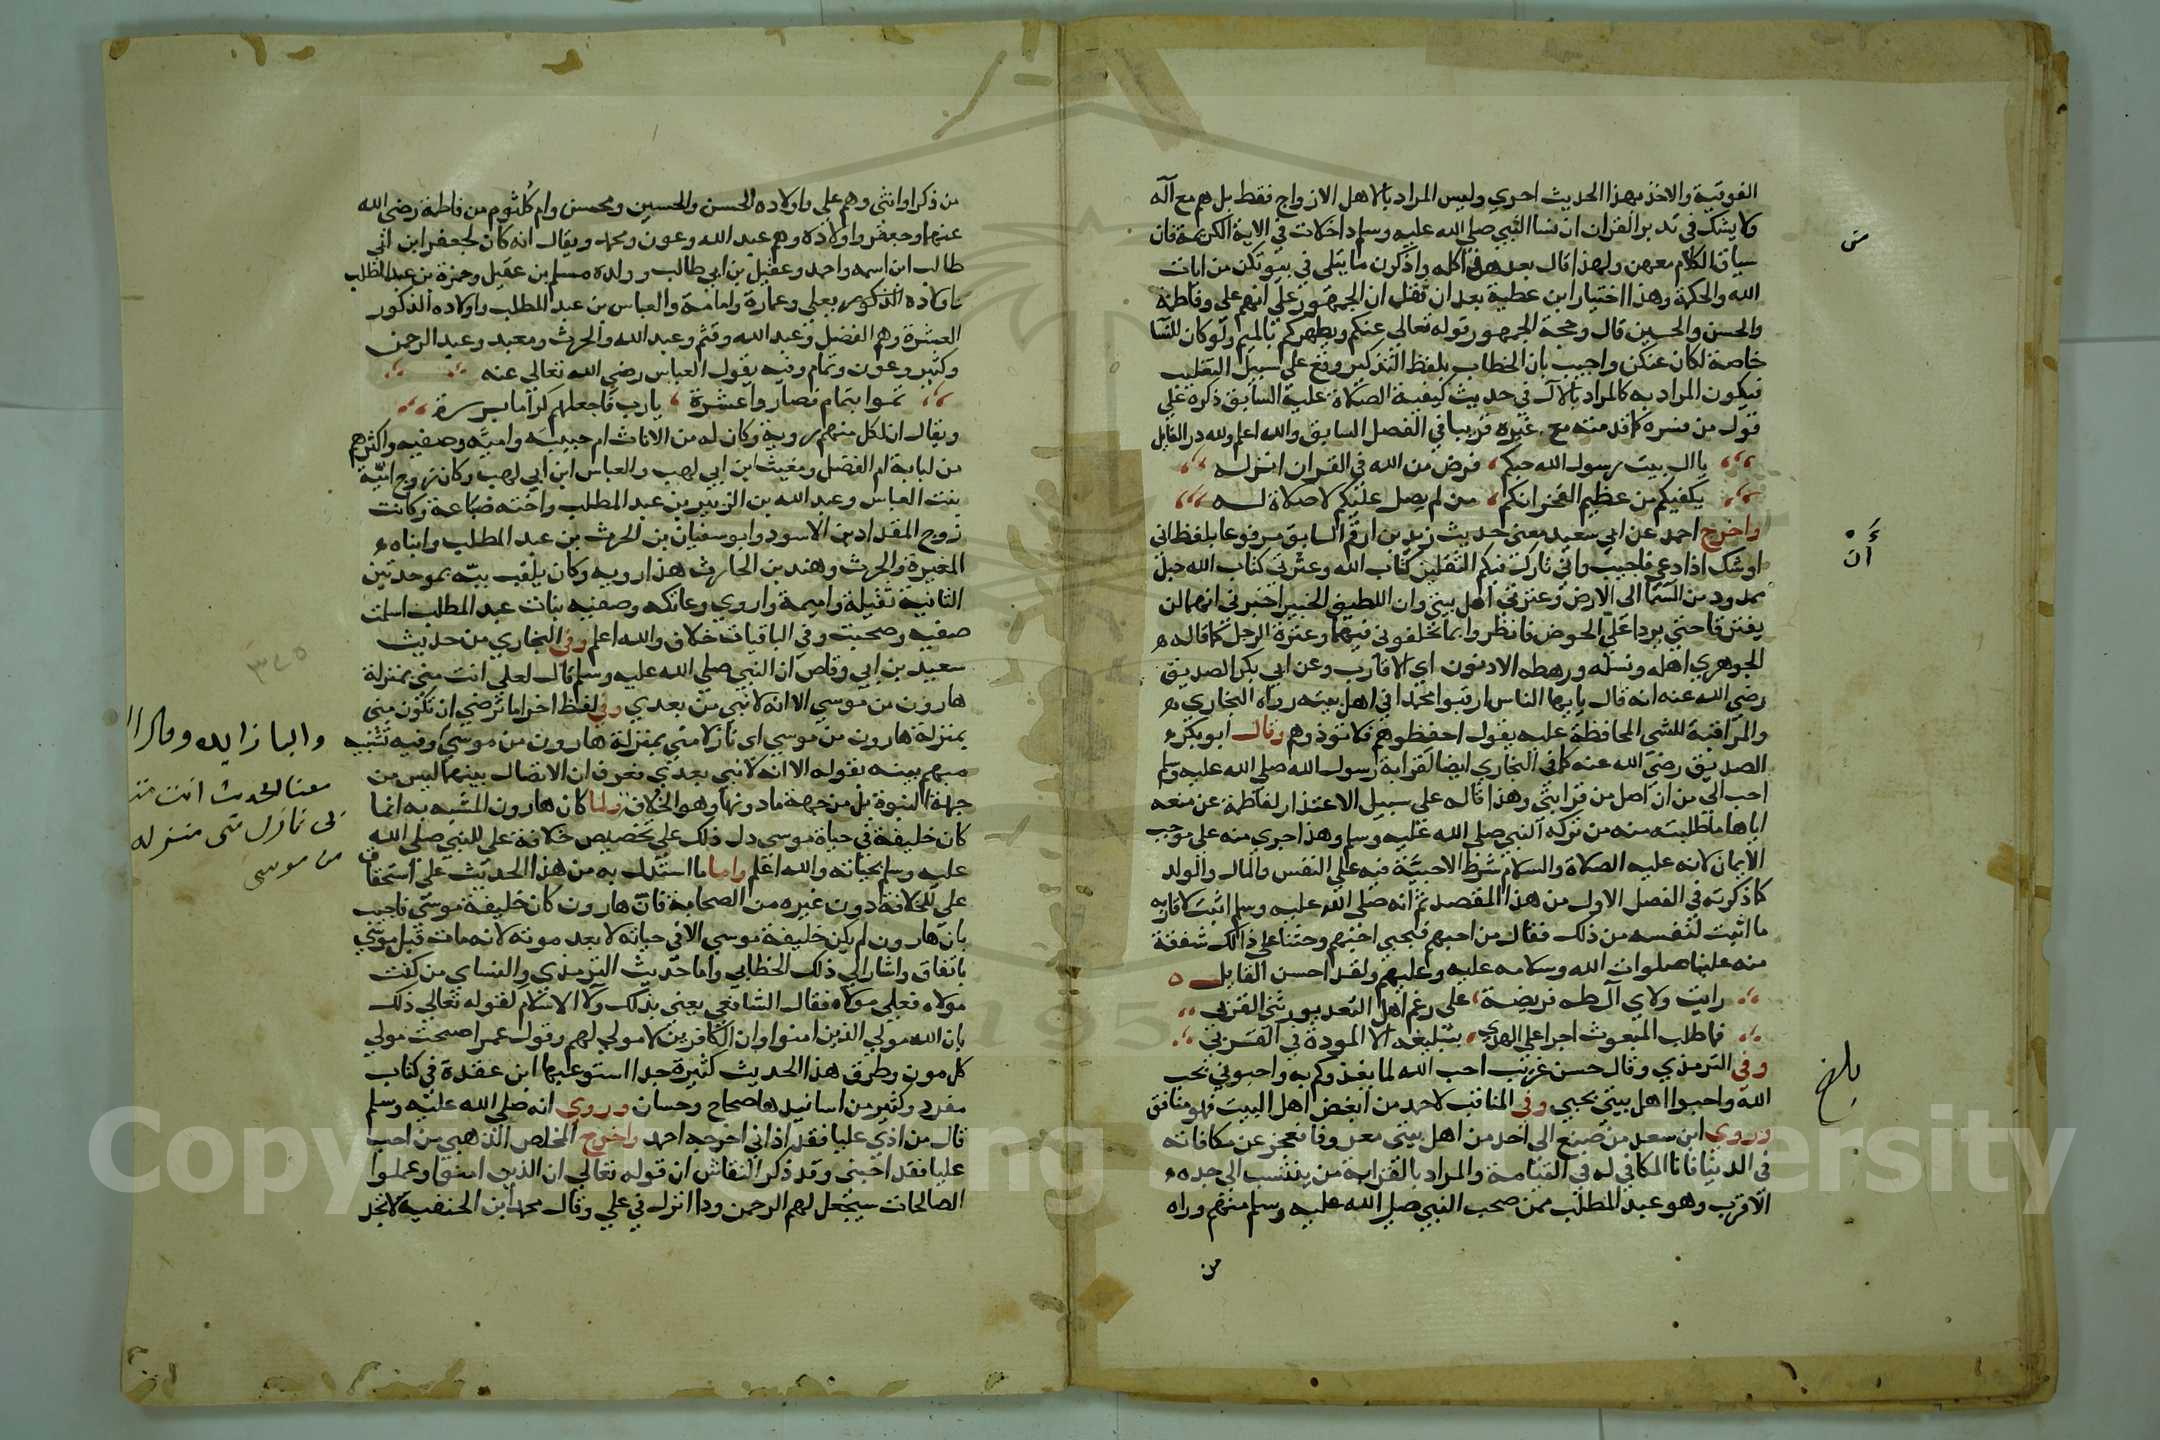 الفوقية والاخذ بهذا الحديث احري وليس المراد بالاهل الازواج فقط بل هم مع آله
ولا يشك في تدبر القران ان نسا النبي صلي الله عليه وسلم داخلات في الاية الكريمة فان
سياق الكلام معهن ولهذا قال بعد هذا كله واذكرن ما يتلي في بيوتكن من ايات
الله والحكمة وهذا اختيار ابن عطية بعد ان نقل ان الجمهور علي انهم علي وفاطمة
والحسن والحسين قال وحجة الجمهور قوله تعالي عنكم ويطهركم بالميم ولو كان للنسا
خاصة لكان عنكن واجيب بان الخطاب بلفظ التذكير وقع علي سبيل التغلب
فيكون المراد به كالمراد بالآل في حديث كيفية الصلاة علية السابق ذكره علي
قول من فسره كما قدمته مع غيره قريبا في الفصل السابق والله اعلم ولله در القايل
يا ال بيت رسول الله حبكم فرض من الله في القران انزله
يكفيكم من عظيم الفخر انكم من لم يصل عليكم لا صلاة له
واخرج احمد عن ابي سعيد معني حديث زيد بن ارقم السابق مرفوعا بلفظ اني
اوشك اذا دعي فاجيب واني تارك فيكم الثقلين كتاب الله وعترتي كتاب الله حبل
ممدود من السما الي الارض وعترتي اهل بيتي وان اللطيف الخبير اخبرني انهما لن
يفترقا حتي يردا علي الحوض فانظروا بما تخلفوني فيهما وعترة الرجل كما قاله
الجوهري اهله ونسله ورهطه الادنون اي الاقارب وعن ابي بكر الصديق
رضي الله عنه انه قال يا ايها الناس ارقبوا محمدا في اهل بيته رواه البخاري
والمراقبة للشي المحافظة عليه يقول احفظوهم فلا تؤذوهم وقال ابو بكر
الصديق رضي الله عنه كما في البخاري ايضا لقرابة رسول الله صلي الله عليه وسلم
احب الي من ان اصل من قرابتي وهذا قاله علي سبيل الاعتذار لفاطمة عن منعه
اياها ما طلبته منه من تركة النبي صلي الله عليه وسلم وهذا جري منه علي موجب
الايمان لانه عليه الصلاة والسلام شرط الاحبية فيه علي النفس والمال والولد
كما ذكرته في الفصل الاول من هذا المقصد ثم انه صلي الله عليه وسلم اثبت لاقاربه
ما اثبت لنفسه من ذلك فقال من احبهم فبحبي احبهم وحثنا علي ذالك شفقة
منه علينا صلوات الله وسلامه عليه وعليهم ولقد احسن القايل
رايت ولاي آل طه فريضة علي رغم اهل البعد يورثني القربي
فما طلب المبعوث اجرا علي الهدي بتبليغه الا المودة في القربي
وفي الترمذي وقال حسن غريب احب الله لما يغذوكم به واحبوني بحب
الله واحبوا اهل بيتي بحبي وفي المناقب لاحمد من ابغض اهل البيت فهو منافق
وروي ابن سعد من صنع الي احد من اهل بيتي معروفا فعجز عن مكافاته
في الدنيا فانا المكافي له في القيامة والمراد بالقرابة من ينتسب الي جده
الاقرب وهو عبد المطلب ممن صحب النبي صلي الله عليه وسلم منهم وراه
من
أن
بلغ
من ذكر او انثي وهم علي واولاده الحسن والحسين ومحسن وام كلثوم من فاطمة رضي الله
عنها وجعفر واولاده وهم عبد الله وعون ومحمد ويقال انه كان لجعفر ابن ابي
طالب ابن اسمه واحد وعقيل بن ابي طالب وولده مسلم بن عقيل وحمزة بن عبد المطلب
واولاده الذكور يعلي وعمارة وامامة والعباس بن عبد المطلب واولاده الذكور
العشرة وهم الفضل وعبد الله وقثم وعبيد الله والحرث ومعبد وعبد الرحمن
وكثير وعون وتمام وفيه يقول العباس رضي الله تعالي عنه
تموا بتمام فصاروا عشرة يارب فاجعلهم كراما بررة
ويقال ان لكل منهم روية وكان له من الاناث ام حبيبه واميه وصفيه واكثرهم
من لبابة ام الفضل ومغيث ابن ابي لهب والعباس ابن ابي لهب وكان زوج امية
بنت العباس وعبد الله بن الزبير بن عبد المطلب واخته ضباعة وكانت
زوج المقداد بن الاسود وابو سفيان بن الحرث بن عبد المطلب وابناه
المغيرة والحرث وهند بن الحارث هذا رويه وكان يلقب ببه بموحدتين
الثانية ثقيلة واميمة واروي وعاتكه وصفيه بنات عبد المطلب اسلمت
صفيه وصحبت وفي الباقيات خلاف والله اعلم وفي البخاري من حديث
سعيد بن ابي وقاص ان النبي صلي الله عليه وسلم قال لعلي انت مني بمنزلة
هارون من موسي الا انه لا نبي من بعدي وفي لفظ اخر اما ترضي ان تكون مني
بمنزلة هارون من موسي اي نازلا مني بمنزلة هارون من موسي وفيه تشبيه
مبهم بينه بقوله الا انه لا نبي بعدي فعرف ان الاتصال بينهما ليس من
جهة النبوة بل من جهة ما دونها وهو الخلافة ولما كان هارون المشبه به انما
كان خليفة في حياة موسي دل ذلك علي تخصيص خلافة علي للنبي صلي الله
عليه وسلم بحياته والله اعلم واما ما استدل به من هذا الحديث علي استحقاق
علي للخلافة دون غيره من الصحابة فان هارون كان خليفة موسي فاجيب
بان هارون لم يكن خليفة موسي الا في حياته لا بعد موته لانه مات قبل موسي
باتفاق واشار الي ذلك الخطابي واما حديث الترمذي والنساي من كنت
مولاه فعلي مولاه فقال الشافعي يعني بذلك ولا الاسلام لقوله تعالي ذلك
بان الله مولي الذين امنوا وان الكافرين لا مولي لهم وقول عمر اصبحت مولي
كل مومن وطرق هذا الحديث كثيرة جدا استوعبها ابن عقدة في كتاب
مفرد وكثير من اسانيدها صحاح وحسان وروي انه صلي الله عليه وسلم
قال من اذي عليا فقد اذاني اخرجه احمد واخرج المخلص الذهبي من احب
عليا فقد احبني وقد ذكر النقاش ان قوله تعالي ان الذين امنوا وعملوا
الصالحات سيجعل لهم الرحمن ودا انزل في علي وقال محمد ابن الحنفية لا تجد
٣٢٥
والبا زايده
معنا الحديث انت
نازل مني منزله
من موسى